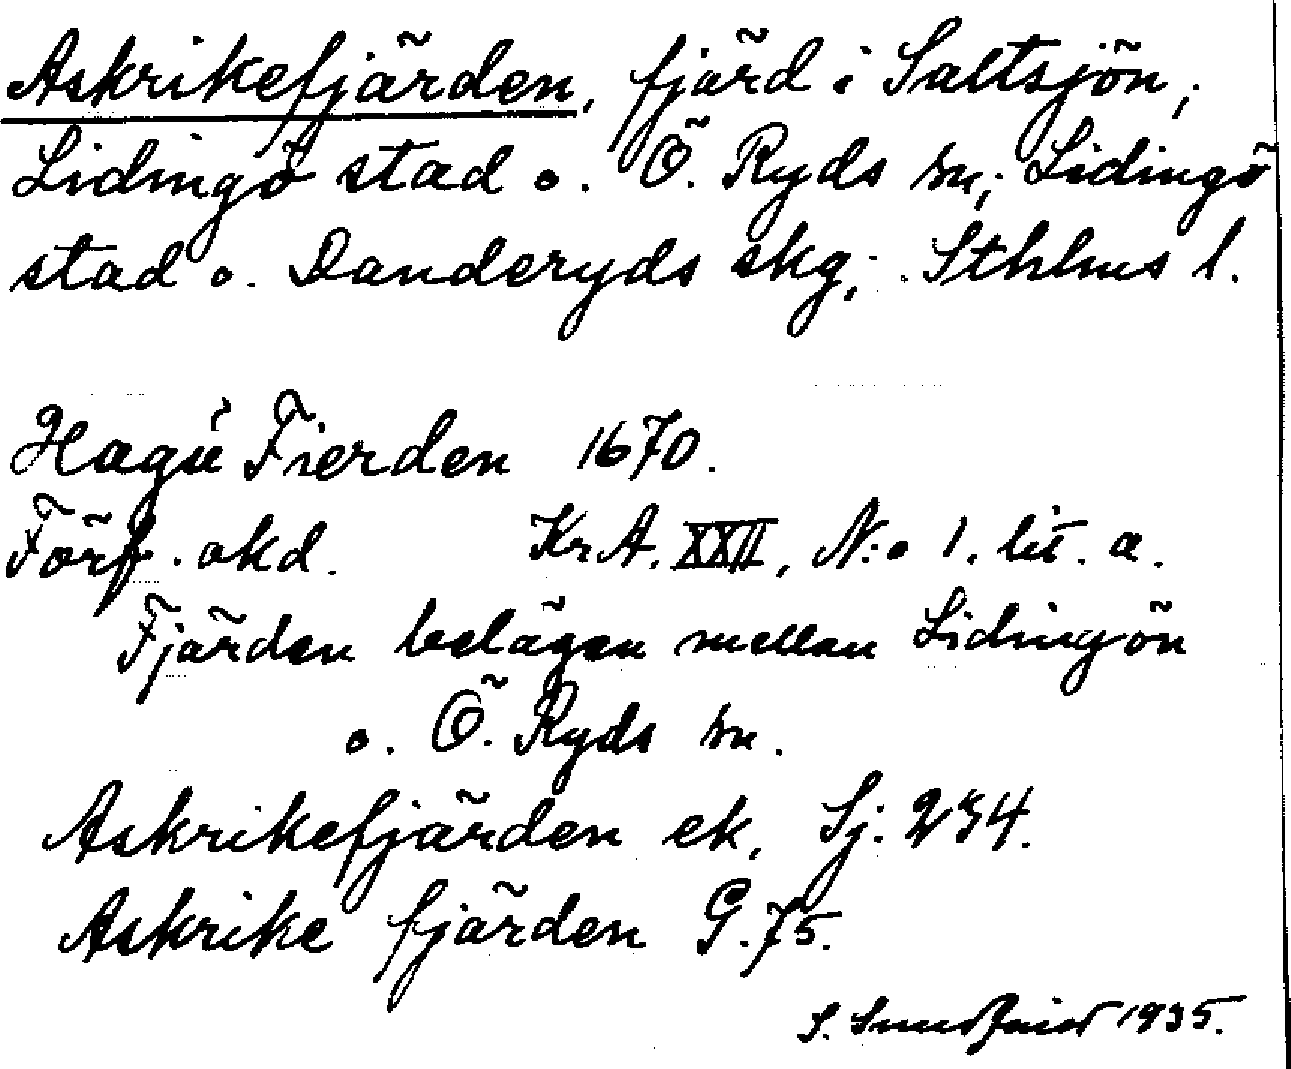 Askrikefjärden, fjärd i Saltsjön,
Lidingö stad o. Ö. Ryds sn; Lidingö
stad o. Danderyds skg; Sthlms l.
Hagú Fierden 1670.
Förf. okd. KrA. XXII, N:o 1. lit. a.
Fjärden belägen mellan Lidingön
o. Ö. Ryds sn.
Askrikefjärden ek. Sj. 234.
Askrike fjärden G. 75.
S. 1935.